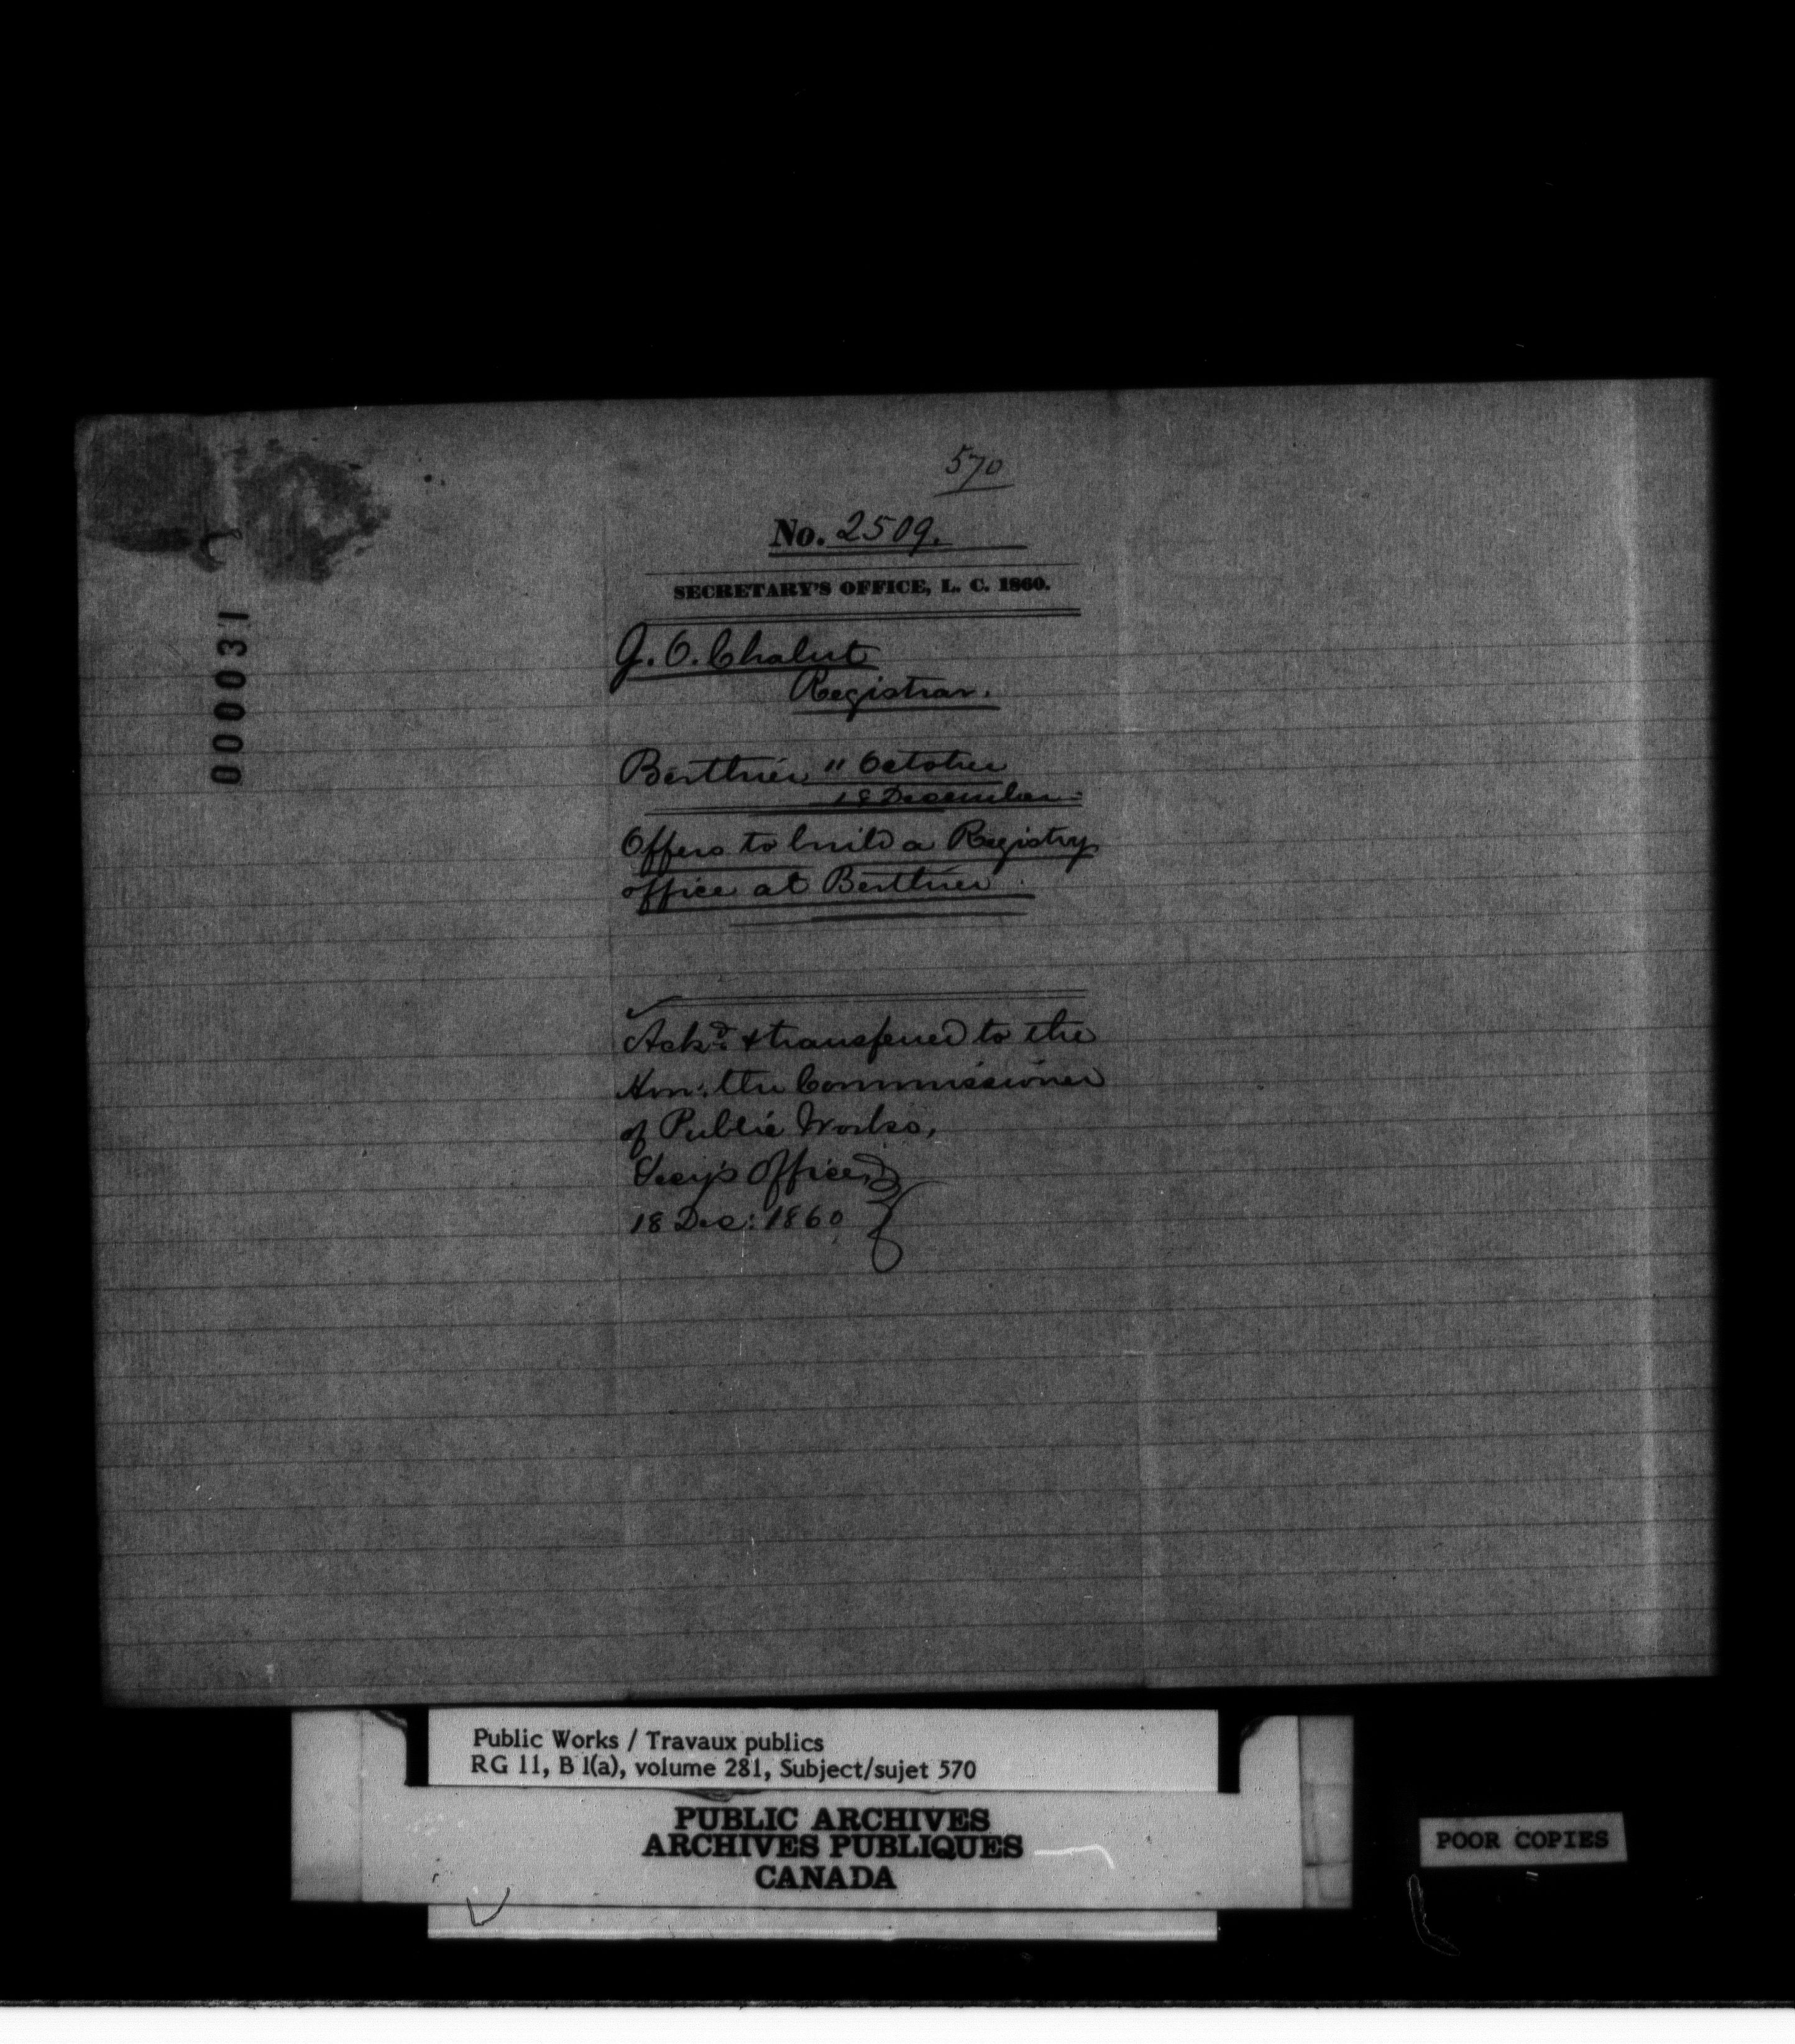 570
No. 2509.
SECRETARY'S OFFICE, L. C. 1860.
J. O. Chalut
Registrar.
Berthier " October
18 December
Offers to build a Registry
office at Berthier.
Ackd. & transferred to the
Hon: the Commissioner
of Public Works,
Secy's Office,
18 Dec: 1860
000031
Public Works / Travaux publics
RG 11, B 1(a), volume 281, Subject/sujet 570
PUBLIC ARCHIVES
ARCHIVES PUBLIQUES
CANADA
POOR COPIES